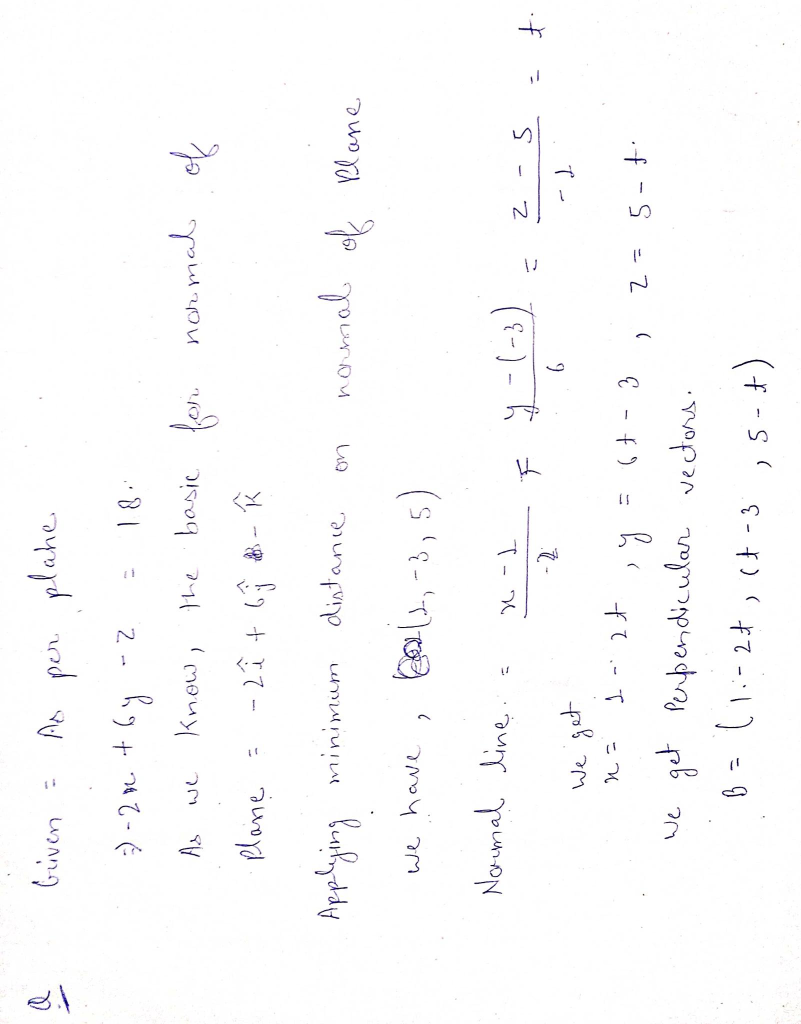 Q
Given = As per plane
⇒ -2x + 6y - z = 18.
As we know, the basic for normal of
Plane = -2î + 6ĵ - k̂
Applying minimum distance on normal of Plane
we have, (1, -3, 5)
Normal line = (x - 1)/-2 = (y - (-3))/6 = (z - 5)/-1 = t.
We get
x = 1 - 2t, y = 6t - 3, z = 5 - t.
We get Perpendicular vectors.
B = (1 - 2t, 6t - 3, 5 - t)